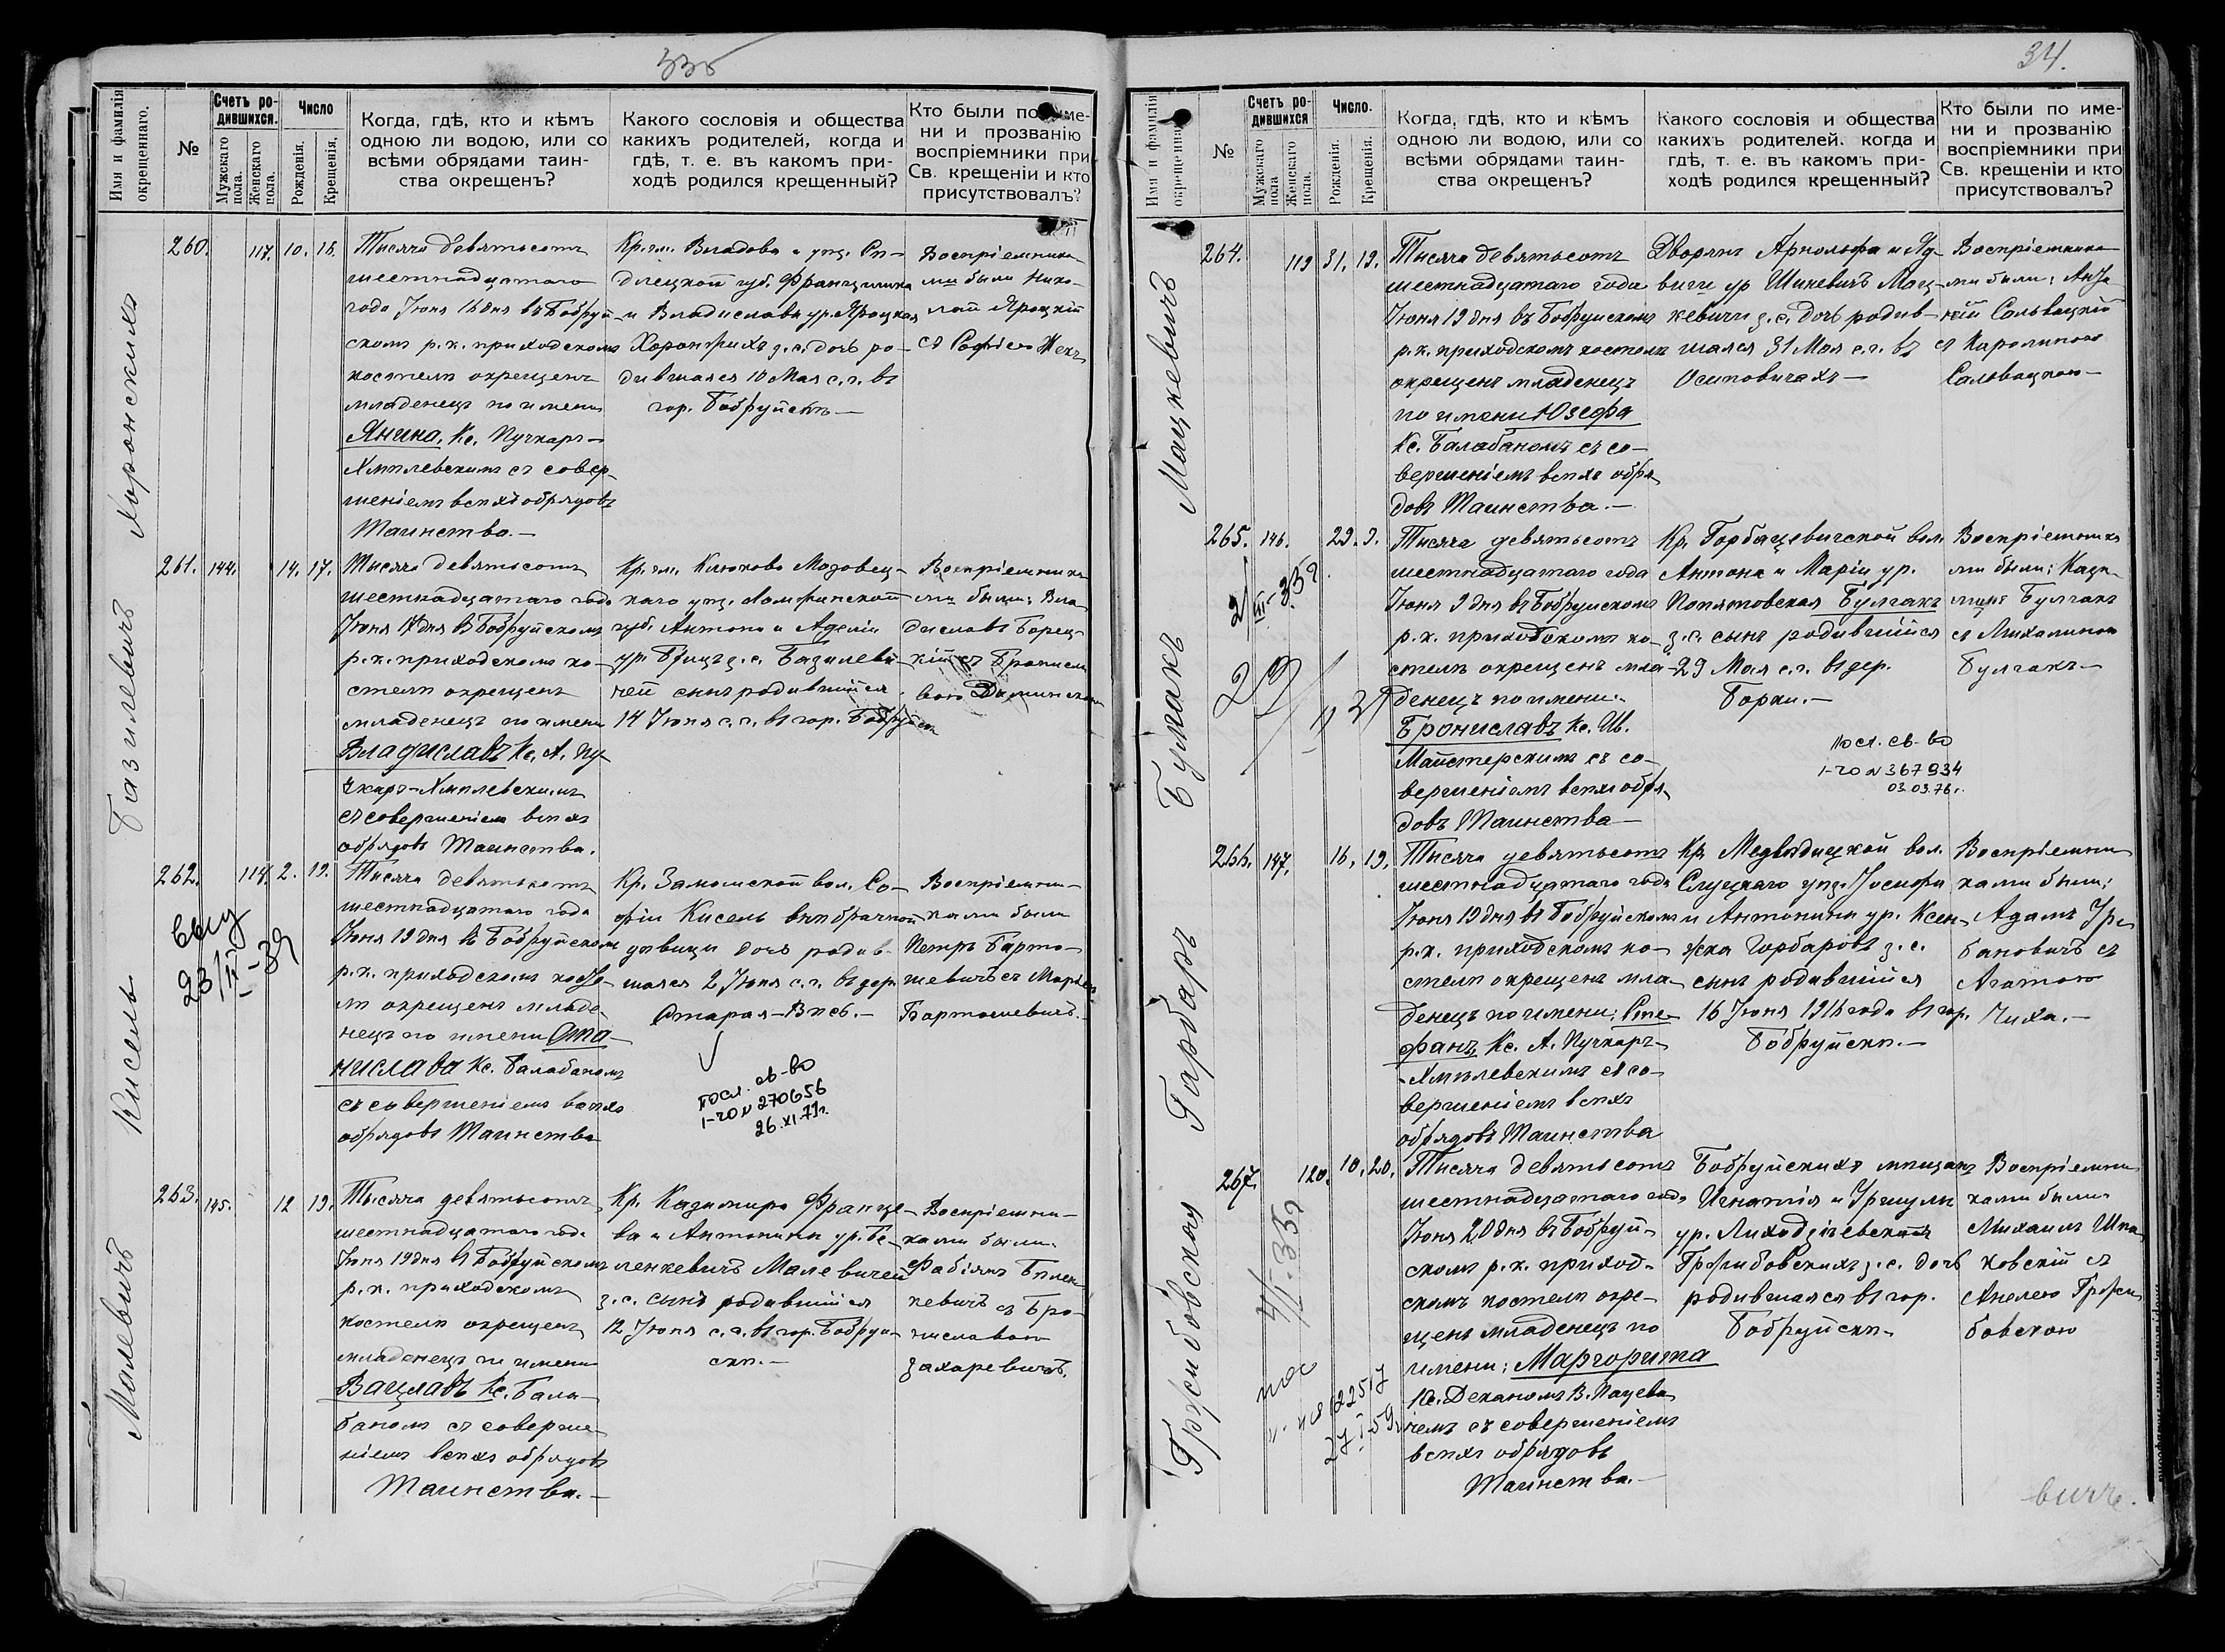 33об
Имя и фамилія окрещеннаго.
№
Счетъ родившихся.
Мужскаго пола.
Женскаго пола.
Число
Рожденія.
Крещенія.
Когда, гдѣ, кто и кѣмъ
одною ли водою, или со
всѣми обрядами таин-
ства окрещенъ?
Какого сословія и общества
какихъ родителей, когда и
гдѣ, т. е. въ какомъ при-
ходѣ родился крещенный?
Кто были по име-
ни и прозванію
воспріемники при
Св. крещеніи и кто
присутствовалъ?
Хоронжихъ
260.
117.
10.
16.
Тысяча девятьсотъ
шестнадцатаго
года Іюня 16 дня въ Бобруй-
скомъ р.к. приходскомъ
костелѣ окрещенъ
младенецъ по имени
Янина, Кс. Пучкаръ-
Хмѣлевскимъ съ совер-
шеніемъ всѣхъ обрядовъ
Таинства.-
Кр. гм.
длецкой губ. Францишка
и Владиславы ур. Яроцкая
з.с. дочь ро-
дившаяся 10 Мая с.г. въ
гор. Бобруйскѣ-
Воспріемника-
ми были Нико-
лай Яроцкій
съ Софіею
Базилевичъ
261.
144.
14.
17.
Тысяча девятьсотъ
шестнадцатаго года
Іюня 17 дня въ Бобруйскомъ
р.к. приходскомъ ко-
стелѣ окрещенъ
младенецъ по имени
Владиславъ Кс. А. Пу-
чкаръ-Хмѣлевскимъ
съ совершеніемъ всѣхъ
обрядовъ Таинства.
Кр. гм. Клюково Мазовец-
каго уѣз. Ломжинской
губ. Антона и Аделіи
ур. з.с. Базилеви-
чей сынъ родившійся
14 Іюня с.г. въ гор. Бобруйскѣ
Воспріемника-
ми были: Вла-
диславъ
кій съ Брониса-
вою
Кисель
262.
118.
2.
19.
выд
23/IV-39
Тысяча девятьсотъ
шестнадцатаго года
Іюня 19 дня въ Бобруйскомъ
р.к. приходскомъ косте-
лѣ окрещенъ младе-
нецъ по имени Ста-
нислава Кс. Балабаномъ
съ совершеніемъ всѣхъ
обрядовъ Таинства
Кр. Замошской вол. Со-
фіи Кисель внѣбрачной
дѣвицы дочь родив-
шаяся 2 Іюня с.г. въ дер.
Старая-Весь.-
посл. св-во
I-го N 270656
26.XI.71г.
Воспріемни-
ками были
Петръ Барто-
шевичъ съ Маріею
Бартошевичъ.-
Малевичъ
263.
145.
12
19.
Тысяча девятьсотъ
шестнадцатаго года
Іюня 19 дня въ Бобруйскомъ
р.к. приходскомъ
костелѣ окрещенъ
младенецъ по имени
Вацлавъ Кс. Бала-
баномъ съ соверше-
ніемъ всѣхъ обрядовъ
Таинства.-
Кр. Казимира Францe-
ва и Антонины ур. Бѣ-
ленкевичъ Малевичей
з.с. сынъ родившійся
12 Іюня с.г. въ гор. Бобруй-
скѣ.-
Воспріемни-
ками были
Фабіянъ Бѣлен-
кевичъ съ Бро-
ниславою
Захаревичъ.
34.
Имя и фамилія окрещеннаго
№
Счетъ родившихся
Мужскаго пола
Женскаго пола.
Число.
Рожденія.
Крещенія.
Когда, гдѣ, кто и кѣмъ
одною ли водою, или со
всѣми обрядами таин-
ства окрещенъ?
Какого сословія и общества
какихъ родителей. когда и
гдѣ, т. е. въ какомъ при-
ходѣ родился крещенный?
Кто были по име-
ни и прозванію
воспріемники при
Св. крещеніи и кто
присутствовалъ?
Мацкевичъ
264.
119
31.
19.
Тысяча девятьсотъ
шестнадцатаго года
Іюня 19 дня въ Бобруйскомъ
р.к. приходскомъ костелѣ
окрещенъ младенецъ
по имени Юзефа
Кс. Балабаномъ съ со-
вершеніемъ всѣхъ обря-
довъ Таинства.-
Дворянъ Арнольфа и Яд-
виги ур Шиневичъ Мац-
кевичи з.с. дочь родив-
шаяся 31 Мая с.г. въ
Осиповичахъ-
Воспріемника-
ми были:
съ Каролиною
Булгакъ
265.
146.
29.
9.
Тысяча девятьсотъ
шестнадцатаго года
Іюня 9 дня въ Бобруйскомъ
р.к. приходскомъ ко-
стелѣ окрещенъ мла-
денецъ по имени:
Брониславъ Кс. Ш.
Майстерскимъ съ со-
вершеніемъ всѣхъ обря-
довъ Таинства-
Кр. Горбацевичской вол.
Антона и Маріи ур.
Понятовская Булгакъ
з.с. сынъ родившійся
29 Мая с.г. въ дер.
Борки.-
посл. св-во
I-го N 367934
03.03.76г.
Воспріемника-
ми были: Кази-
міръ Булгакъ
съ Михалиною
Булгакъ-
Гарбаръ
266.
147.
16.
19.
Тысяча девятьсотъ
шестнадцатаго года
Іюня 19 дня въ Бобруйскомъ
р.к. приходскомъ ко-
стелѣ окрещенъ мла-
денецъ по имени: Сте-
фанъ, Кс. А. Пучкаръ-
-Хмѣлевскимъ съ со-
вершеніемъ всѣхъ
обрядовъ Таинства
Кр. Медвѣдицкой вол.
Слуцкаго уѣз. Іосифа
и Антонины ур. Ксен-
жка Горбаровъ з.с.
сынъ родившійся
16 Іюня 1916 года въ гор.
Бобруйскѣ.-
Воспріемни-
ками были:
Адамъ Ур-
бановичъ съ
Агатою
Чиха.-
Гржибовская
267.
120.
10.
20.
27 I 59г
Тысяча девятьсотъ
шестнадцатаго года
Іюня 20 дня въ Бобруй-
скомъ р.к. приход-
скомъ костелѣ окре-
щенъ младенецъ по
имени: Маргорита
Кс. Деканомъ В. Пацеви-
чемъ съ совершеніемъ
всѣхъ обрядовъ
Таинства.-
Бобруйскихъ мѣщанъ
Игнатія и Уршули
ур. Лиходзіевскихъ
Гржибовскихъ з.с. дочь
родившаяся въ гор.
Бобруйскѣ-
Воспріемни-
ками были
Михаилъ Шпа-
ковскій съ
Анелею Гржи-
бовскою